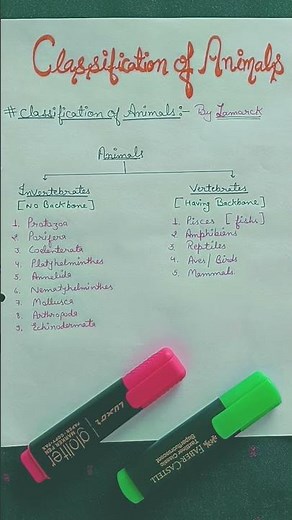 Classification of Animals
# Classification of Animals:- By Lamarck
Animals
Invertebrates
[NO Backbone]
1. Protozoa
2. Porifera
3. Coelenterata
4. Platyhelminthes
5. Annelida
6. Nematyhelminthes
7. Mollusca
8. Arthropoda
9. Echinodermata
Vertebrates
[Having Backbone]
1. Pisces [fish]
2. Amphibians
3. Reptiles
4. Aves/Birds
5. Mammals
LUXOR
gloliter
FABER-CASTELL
Textliner Classic
Superfluorescent